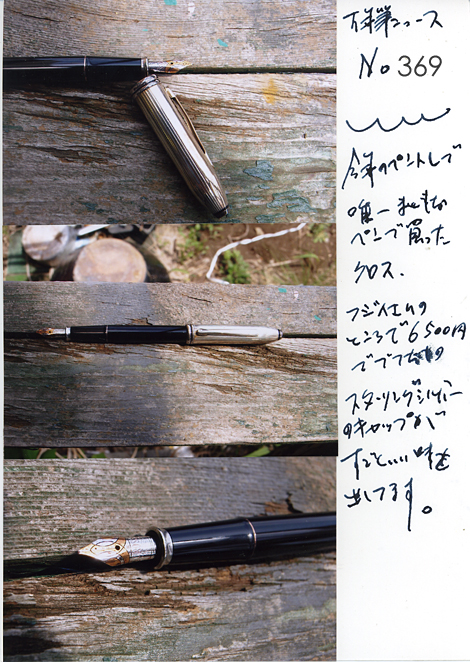 万年筆ニュース
No 369
今年のペントレで
唯一まともな
ペンで買った
クロス.
フジイさんの
ところで6500円
スターリングシルバー
のキャップが
すごくいい味を
出してます。